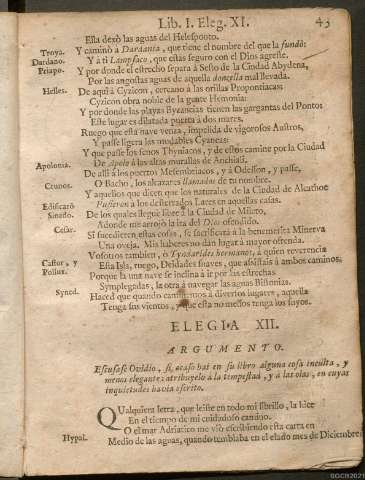 Lib. I. Eleg. XI. 43
Esta dexò las aguas del Helesponto.
Troya. Y caminò a Dardania, que tiene el nombre del que la fundò:
Dardano. Y à ti Lampsaco, que estàs seguro con el Dios agreste.
Priapo. Y por donde el estrecho separa à Sesto de la Ciudad Abydena,
Por las angostas aguas de aquella donçella mal llevada.
Helles. De aqui à Cyzicon, cercano à las orillas Propontiacas:
Cyzicon obra noble de la gente Hemonia:
Y por donde las playas Byzancias tienen las gargantas del Pontos
Este lugar es dilatada puerta à dos mares.
Ruego que esta nave venza, impelida de vigorosos Austros,
Y passe ligera las mudables Cyaneas:
Y que passe los senos Thyniacos, y de estos camine por la Ciudad
Apolonia. De Apolo à las altas murallas de Anchiali.
De alli à los puertos Mesembriacos, y à Odesson, y passe,
Crunos. O Bacho, los alcazares llamados de tu nombre.
Y aquellos que dicen que los naturales de la Ciudad de Alcathoe
Edificarõ Pusieron à los desterrados Lares en aquellas casas.
Sinado. De los quales llegue libre à la Ciudad de Mileto,
Adonde me arrojò la ira del Dios ofendido.
Cesar. Si sucedieren estas cosas, se sacrificarà à la benemerita Minerva
Una oveja. Mis haberes no dàn lugar à mayor ofrenda.
Vosotros tambien, ò Tyndarides hermanos, à quien reverencia
Castor, y Esta Isla, ruego, Deidades suaves, que assistais à ambos caminos;
Pollux. Porque la una nave se inclina à ir por las estrechas
Symplegadas, la otra à navegar las aguas Bistonias.
Syned. Haced que quando caminemos à diversos lugares, aquella
Tenga sus vientos, y que esta no menos tenga los suyos.
ELEGIA XII.
ARGUMENTO.
Escusase Ovidio, si acaso hai en su libro alguna cosa inculta, y
menos elegante: atribuyelo à la tempestad, y à las olas, en cuyas
inquietudes havia escrito.
QUalquiera letra, que leiste en todo mi librillo, la hice
En el tiempo de mi cuidadoso camino.
O el mar Adriatico me viò escribiendo esta carta en
Hypol. Medio de las aguas, quando temblaba en el elado mes de Diciembre: